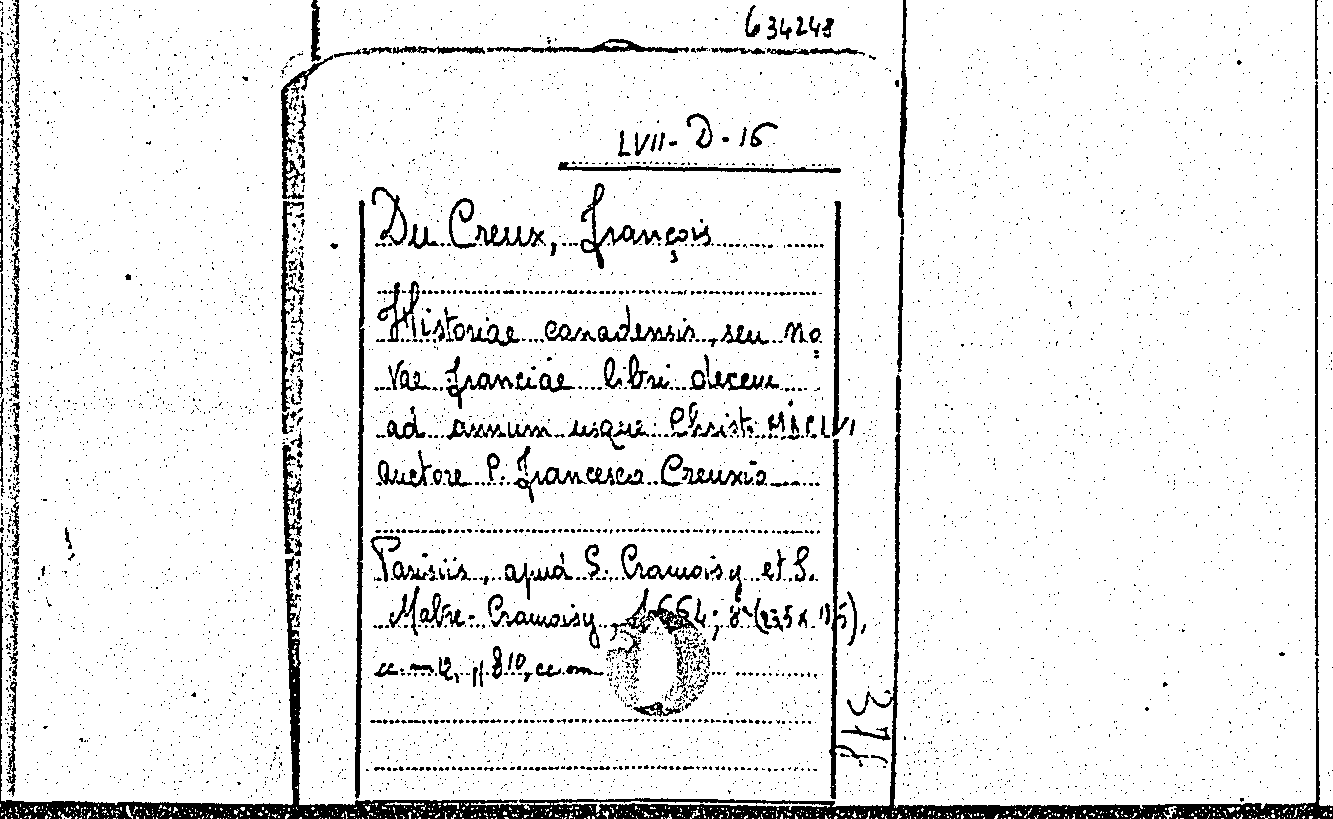 634248
LVII-D-15
Du Creux, François
Historiae canadensis, seu no
vae franciae libri decem
ad annum usque Christi MDCLVI
auctore P. Francesco Creuxio
Parisiis, apud S. Cramoisy et S.
Mabre-Cramoisy, 1664; 8° (23,5 x 15),
cc. nn 12, pp 810, cc. nn